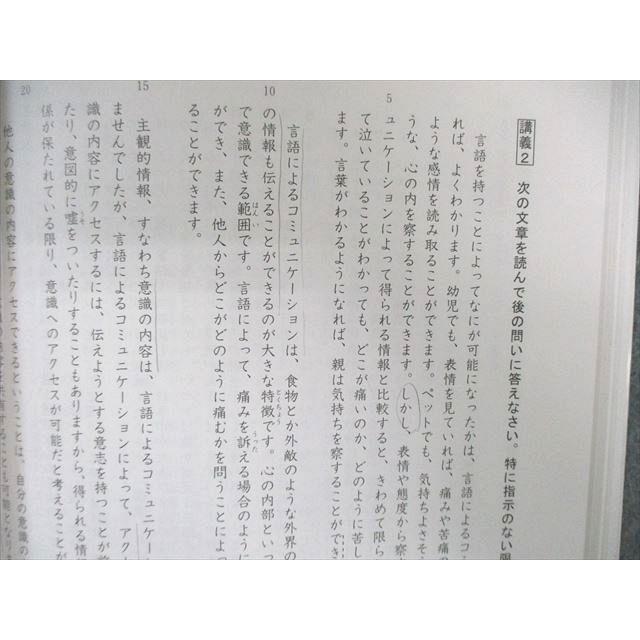 講義2 次の文章を読んで後の問いに答えなさい。特に指示のない限
言語を持つことによってなにが可能になったかは、言語によるコ
れば、よくわかります。幼児でも、表情を見ていれば、痛みや苦痛の
ような感情を読み取ることができます。ペットでも、気持ちよさそ
うな、心の内を察することができます。しかし、表情や態度から察
5
ュニケーションによって得られる情報と比較すると、きわめて限ら
て泣いていることがわかっても、どこが痛いのか、どのように苦し
ます。言葉がわかるようになれば、親は気持ちを察することができ
言語によるコミュニケーションは、食物とか外敵のような外界の
10
の情報も伝えることができるのが大きな特徴です。心の内部といっ
とくちょう
で意識できる範囲です。言語によって、痛みを訴える場合のように
はんい
うった
ができ、また、他人からどこがどのように痛むかを問うことによっ
ることができます。
主観的情報、すなわち意識の内容は、言語によるコミュニケー
15
ませんでしたが、言語によるコミュニケーションによって、アク
識の内容にアクセスするには、伝えようとする意志を持つことが
たり、意図的に嘘をついたりすることもありますから、得られる情
うそ
係が保たれている限り、意識へのアクセスが可能だと考えることが
20
他人の意識の内容にアクセスできるということは、自分の意識の